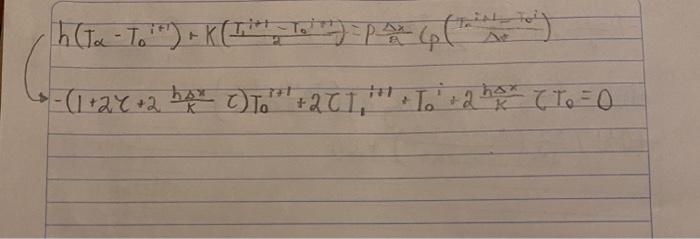 h(T_α - T_0^{i+1}) + K(\frac{T_1^{i+1} - T_0^{i+1}}{2}) = ρ \frac{Δx}{2} Cp(\frac{T_0^{i+1} - T_0^i}{Δt})
-(1+2τ+2 \frac{hΔx}{K} τ)T_0^{i+1} + 2τT_1^{i+1} + T_0^i + 2 \frac{hΔx}{K} τT_0 = 0